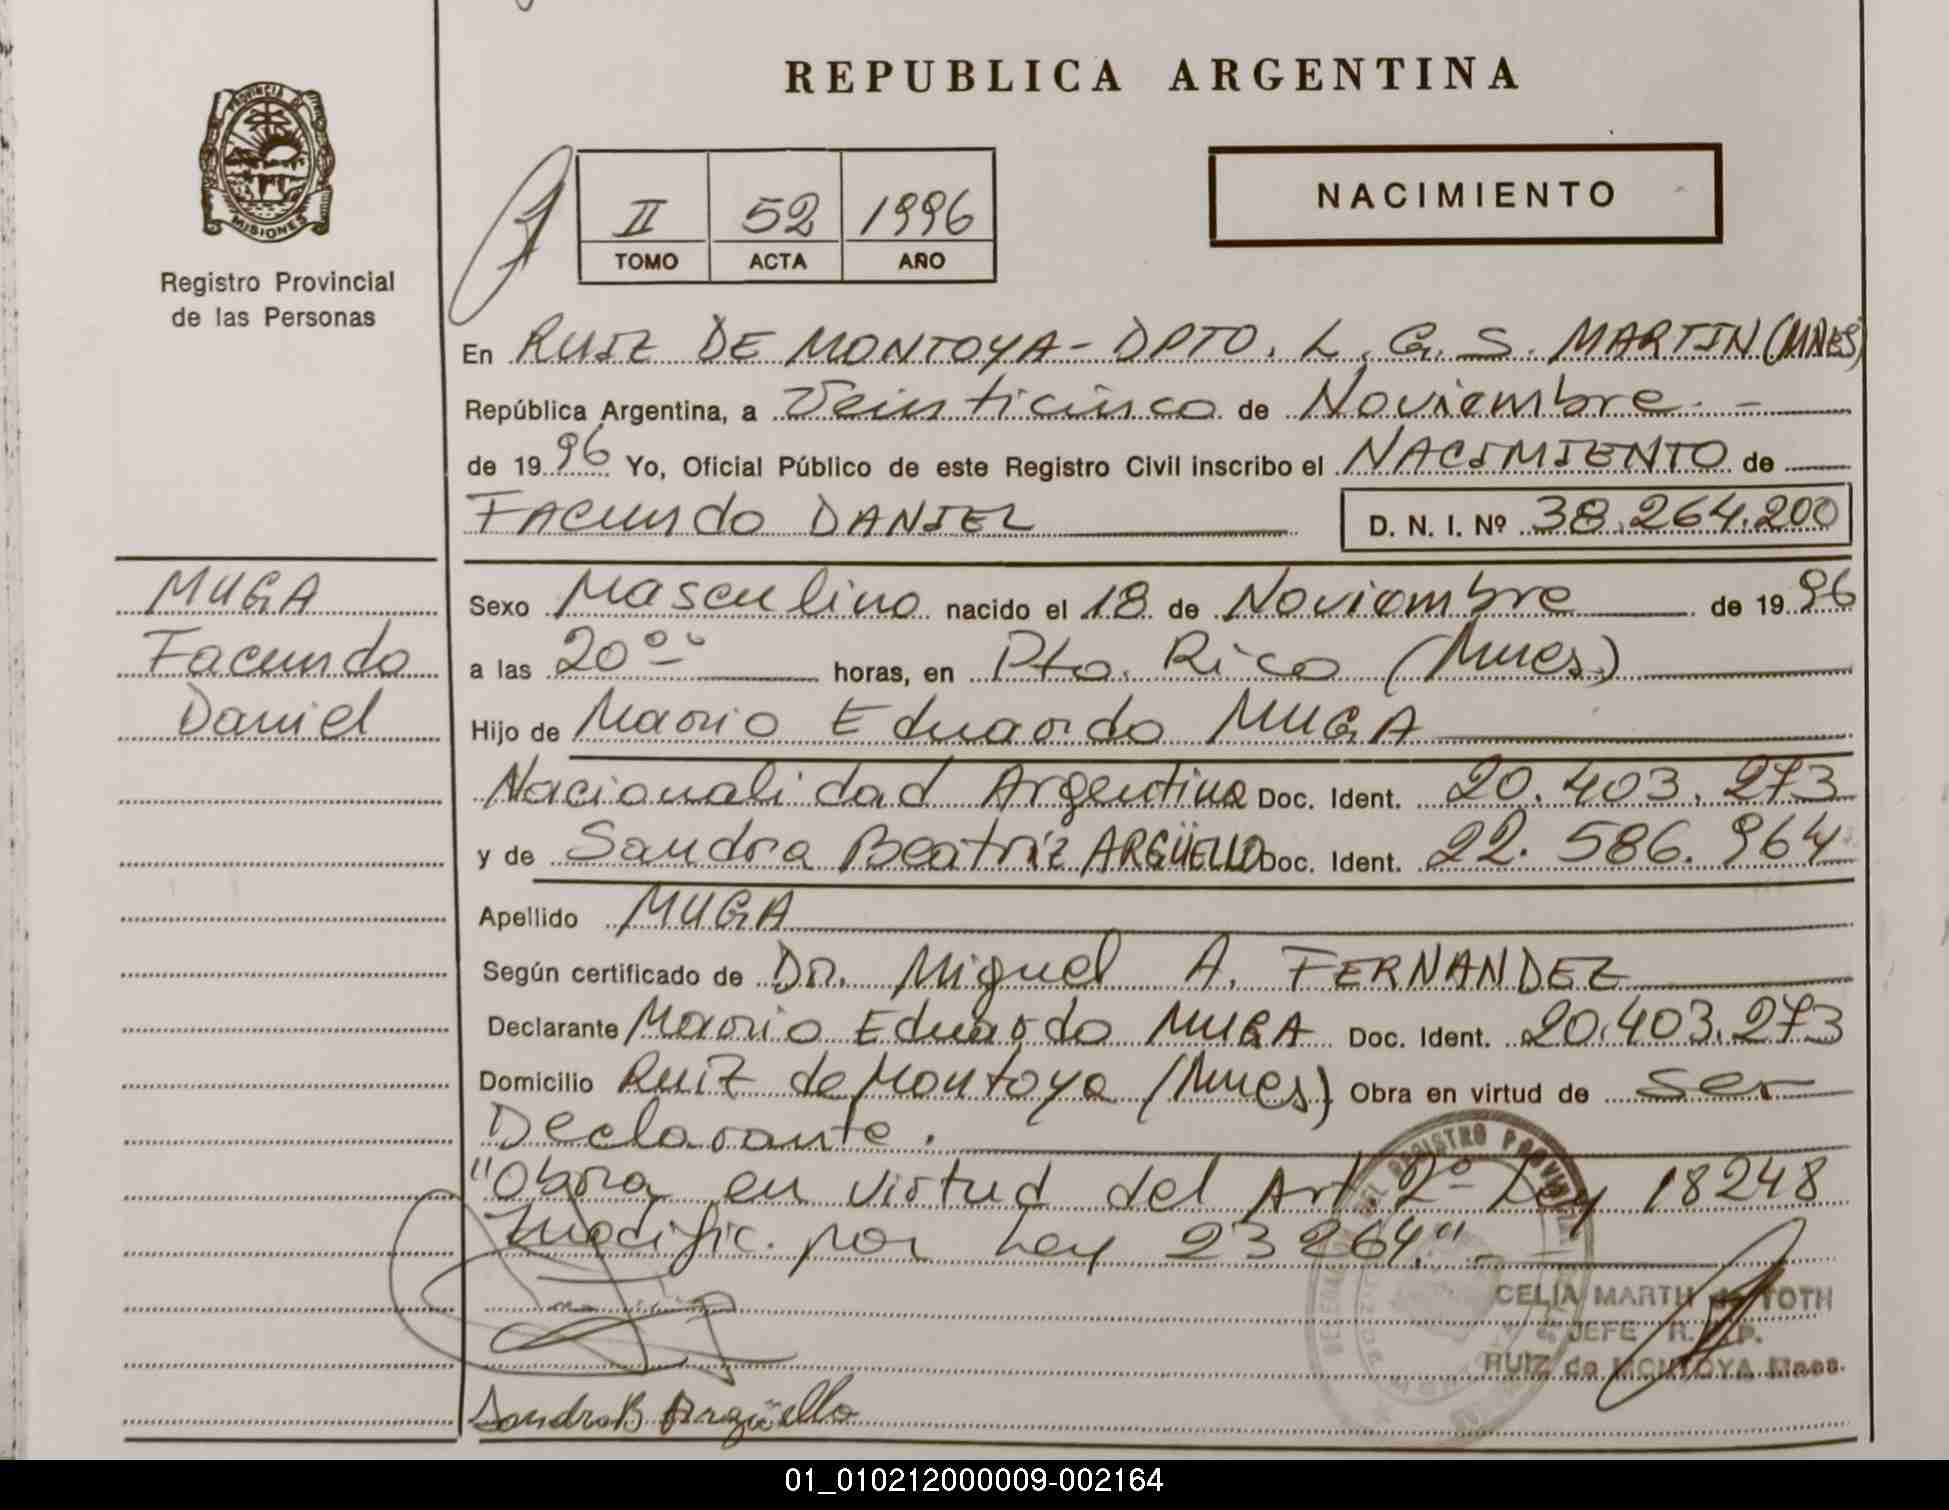 REPUBLICA ARGENTINA
PROVINCIA DE
MISIONES
Registro Provincial
de las Personas
II 52 1996
TOMO ACTA AÑO
NACIMIENTO
En RUIZ DE MONTOYA - DPTO. L. G. S. MARTIN (MNES)
República Argentina, a Veinticinco de Noviembre.-
de 1996 Yo, Oficial Público de este Registro Civil inscribo el NACIMIENTO de
FACUNDO DANIEL D. N. I. Nº 38.264.200
MUGA
Facundo
Daniel
Sexo Masculino nacido el 18 de Noviembre de 1996
a las 20°° horas, en Pto. Rico (Mnes.)
Hijo de Mario Eduardo MUGA
Nacionalidad Argentina Doc. Ident. 20.403.273
y de Sandra Beatriz ARGÜELLO Doc. Ident. 22.586.964
Apellido MUGA
Según certificado de Dr. Miguel A. FERNANDEZ
Declarante Mario Eduardo MUGA Doc. Ident. 20.403.273
Domicilio Ruiz de Montoya (Mnes) Obra en virtud de ser
Declarante.
"Obra en virtud del Art. 2º Ley 18248
modific. por Ley 23264".-
REGISTRO PROVINCIAL
CELIA MARTH de TOTH
JEFE R. P.
RUIZ de MONTOYA Mnes.
Sandra B Argüello
01_010212000009-002164